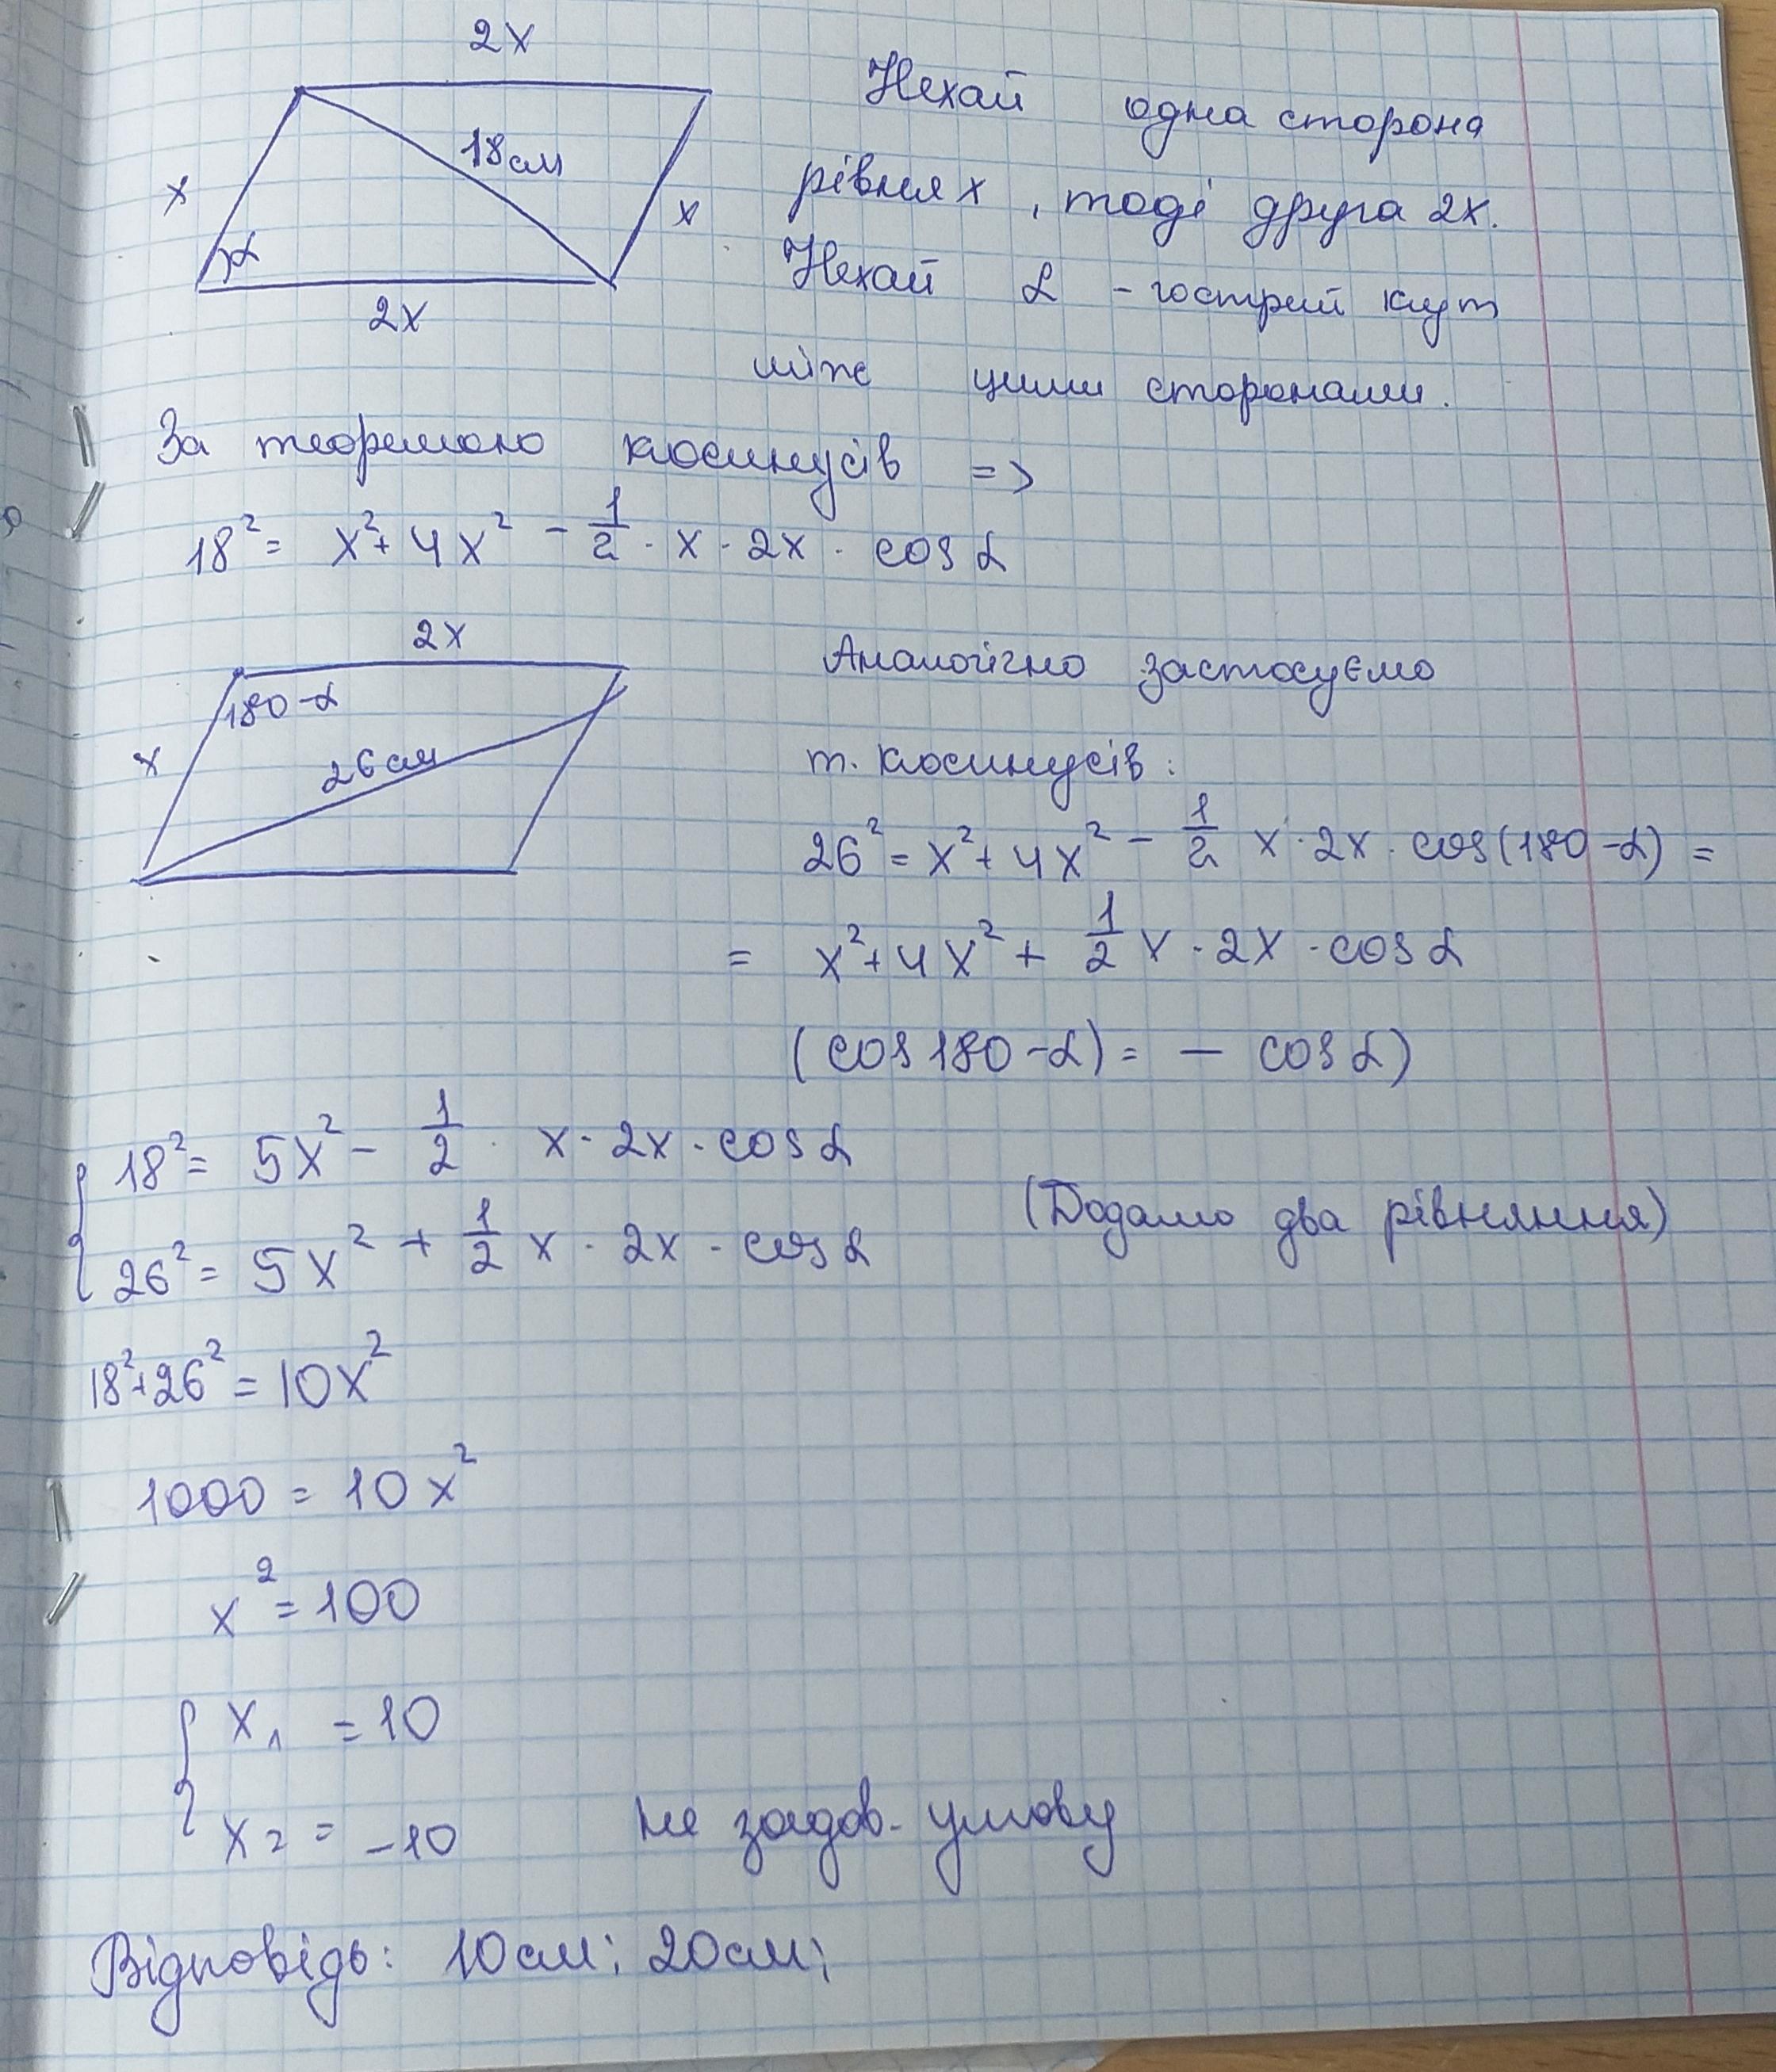 2x
18см
x
x
α
2x
Нехай одна сторона
рівня x, тоді друга 2x.
Нехай α - гострий кут
між цими сторонами.
За теоремою косинусів =>
18² = x² + 4x² - 1/2 · x · 2x · cos α
2x
180-α
x
26см
Аналогічно застосуємо
т. косинусів:
26² = x² + 4x² - 1/2 x · 2x · cos(180-α) =
= x² + 4x² + 1/2 x · 2x · cos α
(cos 180-α) = - cos α)
18² = 5x² - 1/2 · x · 2x · cos α
26² = 5x² + 1/2 x · 2x · cos α
(Додамо два рівняння)
18² + 26² = 10x²
1000 = 10x²
x² = 100
x₁ = 10
x₂ = -10 не задов. умову
Відповідь: 10см; 20см;